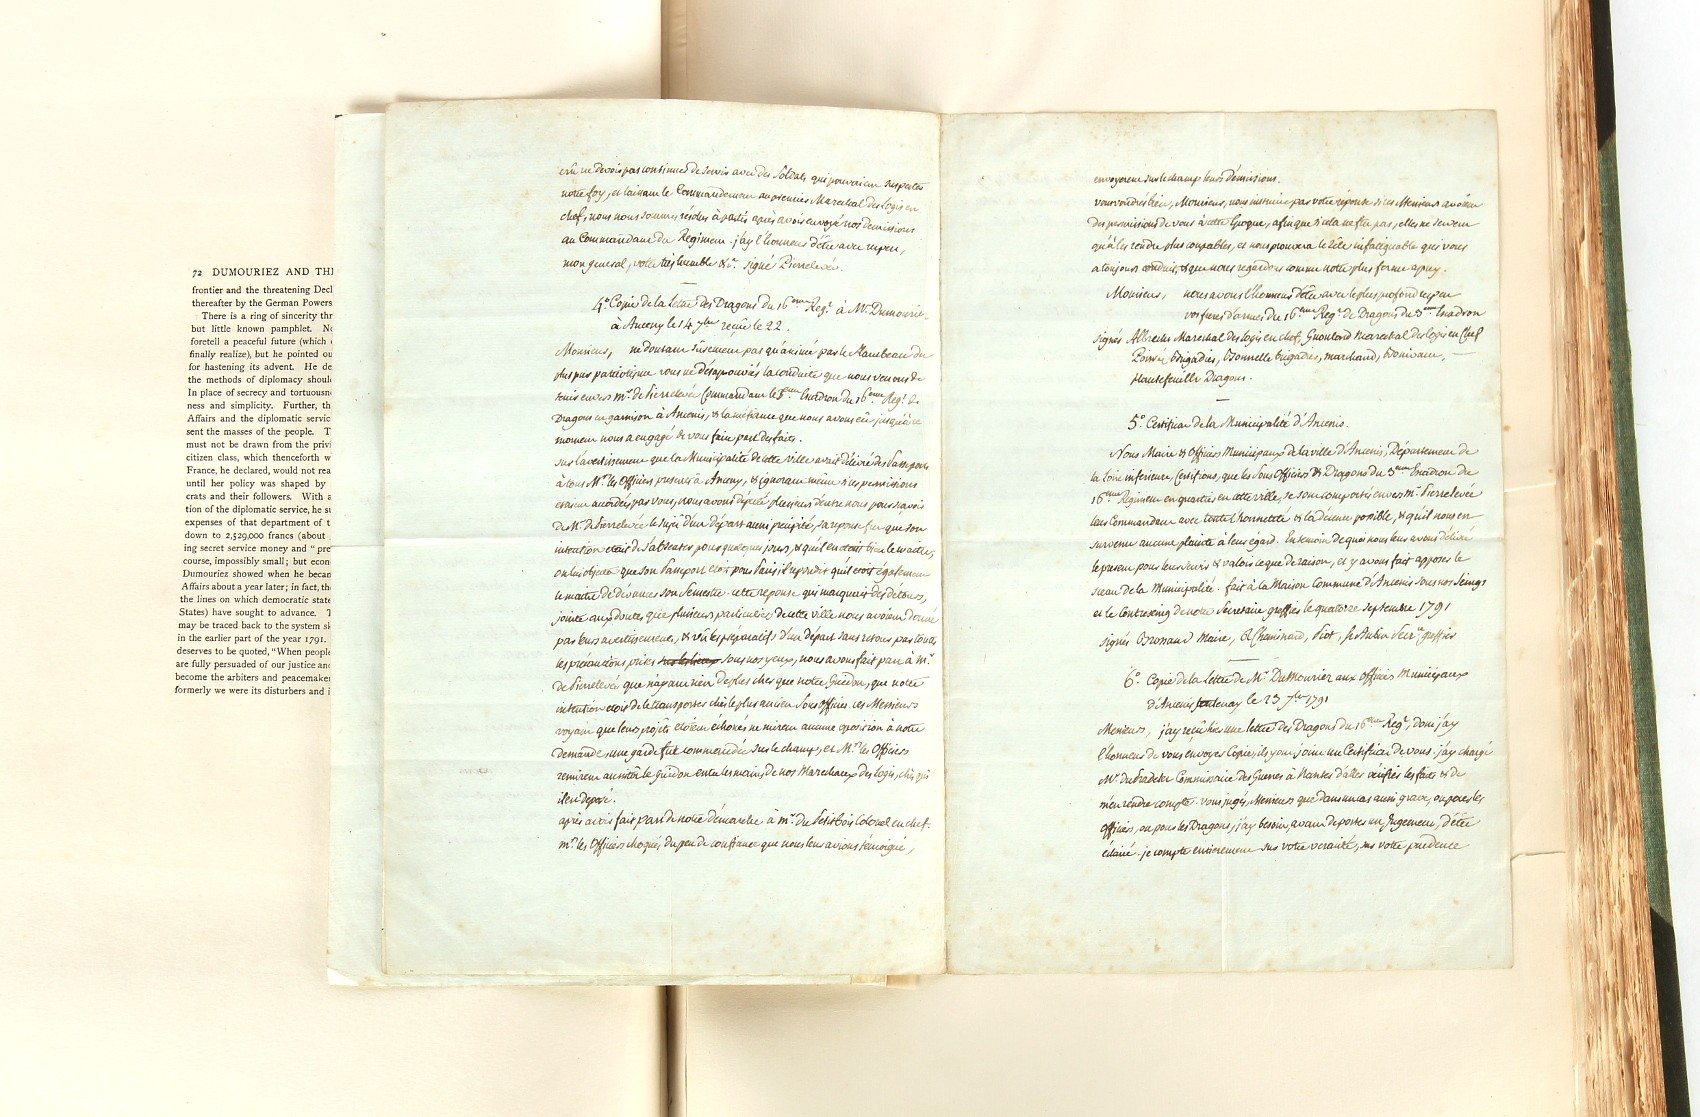 72 DUMOURIEZ AND THE
frontier and the threatening Decl
thereafter by the German Powers
There is a ring of sincerity thr
but little known pamphlet. No
foretell a peaceful future (which
finally realize), but he pointed ou
for hastening its advent. He de
the methods of diplomacy should
In place of secrecy and tortuousn
ness and simplicity. Further, th
Affairs and the diplomatic servic
sent the masses of the people. T
must not be drawn from the privi
citizen class, which thenceforth w
France, he declared, would not rea
until her policy was shaped by
crats and their followers. With a
tion of the diplomatic service, he su
expenses of that department of t
down to 2,529,000 francs (about
ing secret service money and " pre
course, impossibly small; but econ
Dumouriez showed when he becam
Affairs about a year later; in fact, the
the lines on which democratic state
States) have sought to advance. T
may be traced back to the system sk
in the earlier part of the year 1791.
deserves to be quoted, "When people
are fully persuaded of our justice and
become the arbiters and peacemaker
formerly we were its disturbers and i
ne devois pas continuer de servir avec des Soldats qui pouvaient suspecter
notre foy, et laissant le Commandement au premier Marechal des logis en
chef, nous nous sommes résolus à partir après avoir envoyé nos démissions
au Commandant du Regiment. j'ay l'honneur d'être avec respect,
mon general, votre très humble &c. signé Pierrelevée.
4° Copie de la Lettre des Dragons du 16eme Regt. à Mr. Dumouriez
à Anceny le 14 7bre reçue le 22.
Monsieur, ne doutant surement pas qu'animé par le flambeau du
plus pur patriotisme vous ne désaprouviés la conduite que nous venons de
tenir envers Mr. de Pierrelevée Commandant le 3eme Escadron du 16eme Regt. de
Dragons en garnison à Ancenis, & la méfiance que nous avons eu jusqu'à ce
moment nous a engagé de vous faire part des faits.
sur l'avertissement que la Municipalité de cette ville avait délivré des Passeports
à tous Mrs. les Officiers presents à Anceny, & ignorant même si ces permissions
etaient accordées par vous, nous avons député plusieurs d'entre nous pour savoir
de Mr. de Pierrelevée le sujet d'un départ aussi precipité, sa reponse fut que son
intention etait de s'absenter pour quelques jours, & qu'il en etait bien le maitre,
on lui objecta que son Passeport etait pour Paris, il repondit qu'il etait également
le maitre de devancer son Semestre. cette réponse qui marquait des détours,
jointe aux doutes que plusieurs particuliers de cette ville nous avaient donné
par leurs avertissements, & vû les préparatifs d'un départ sans retour par toutes
les précautions prises sous nos yeux, nous avons fait part à Mr.
de Pierrelevée que n'ayant rien de plus cher que notre Guidon, que notre
intention etoit de le transporter chés le plus ancien Sous Officier. ces Messieurs
voyant que leurs projets etaient échoués ne mirent aucune oposition à notre
demande, une garde fut commandée sur le champ, et Mrs. les Officiers
remirent aussitôt le guidon entre les mains de nos Marechaux des logis, chés qui
il en deposé.
après avoir fait part de notre démarche à Mr. du Petitbois Colonel en chef.
Mrs. les Officiers choqués du peu de confiance que nous leur avions témoigné,
envoyerent sur le champ leurs démissions.
vous voudrés bien, Monsieur, nous instruire par votre réponse si ces Messieurs avaient
des permissions de vous à cette Epoque, afin que si cela ne fut pas, elle ne servent
qu'à les rendre plus coupables, et nous prouvera le zèle infatigable qui vous
a toujours conduit, & que nous regardons comme notre plus ferme apuy.
Monsieur, nous avons l'honneur d'être avec le plus profond respect
vos freres d'armes du 16eme Regt. de Dragons du 3eme Escadron
signés Albrechts Marechal des logis en chef, Marechal des logis en chef
Poirson Brigadier, Bonnelle brigadier, marchand, Bonivard,
Hautefeuille Dragons.
5° Certificat de la Municipalité d'Ancenis.
Nous Maire & Officiers Municipaux de la ville d'Ancenis, Département de
la Loire inferieure, Certifions, que les Sous Officiers & Dragons du 3eme Escadron du
16eme Regiment en quartier en cette ville, se sont comportés envers Mr. Pierrelevée
leur Commandant avec toute l'honnêteté & la décence possible, & qu'il nous est
survenu aucune plainte à leur égard. En temoin de quoi nous leur avons délivré
le present pour leur servir & valoir ce que de raison, et y avons fait apposer le
sceau de la Municipalité. fait à la Maison Commune d'Ancenis sous nos Seings
et le Contreseing de notre Secretaire greffier le quatorze septembre 1791
signés Brossaud Maire, Piot, Secre. greffier
6° Copie de la Lettre de Mr. Dumouriez aux Officiers Municipaux
d'Ancenis fontenay le 23 7bre 1791
Messieurs, j'ay reçu hier une lettre des Dragons du 16eme Regt., dont j'ay
l'honneur de vous envoyer Copie, ils y ont joint un Certificat de vous. j'ay chargé
Mr. du Pradelet Commissaire des Guerres à Nantes d'aller vérifier les faits & de
m'en rendre compte. vous jugés, Messieurs que dans un cas aussi grave, ou pour les
Officiers, ou pour les Dragons, j'ay besoin, avant de porter un Jugement, d'être
éclairé. je compte entierement sur votre veracité, sur votre prudence